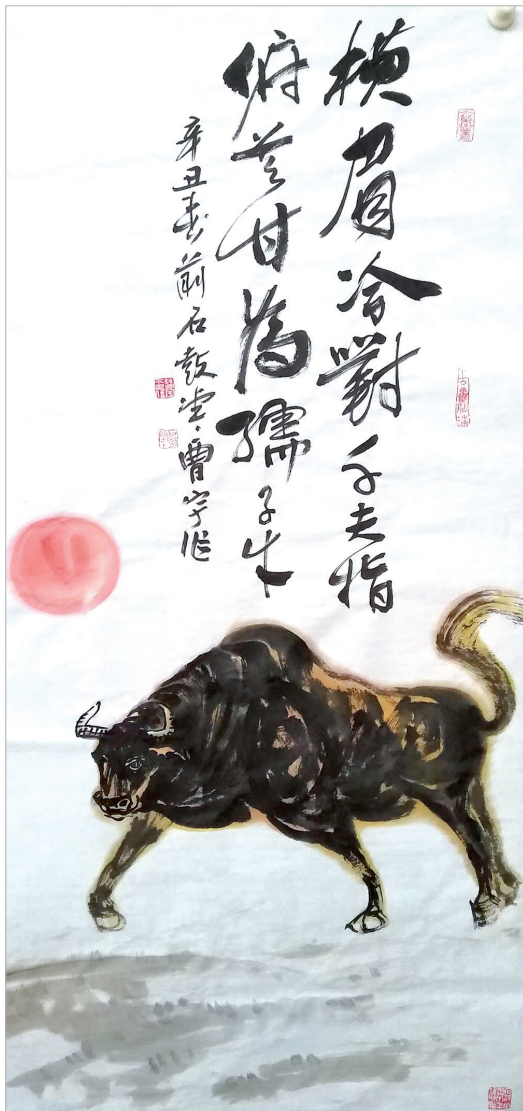 橫眉冷對千夫指
俯首甘為孺子牛
辛丑春前石鼓堂曹宇作